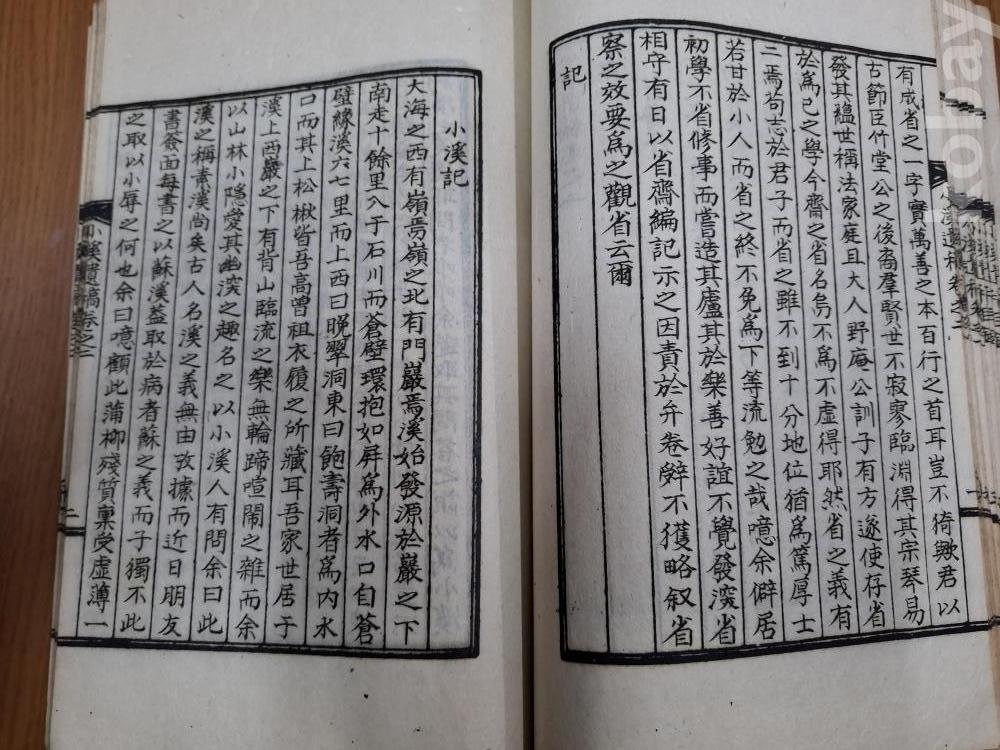 有成省之一字實萬善之本百行之首耳豈不猗歟君以
古節臣竹堂公之後裔羣賢世不寂寥臨淵得其宗琴易
發其蘊世稱法家庭且大人野庵公訓子有方遂使存省
於爲己之學今齋之省名烏不爲不虛得耶然省之義有
二焉苟志於君子而省之雖不到十分地位猶爲篤厚士
若甘於小人而省之終不免爲下等流勉之哉噫余僻居
初學不省修事而嘗造其廬其於樂善好誼不覺發深省
相守有日以省齋編記示之因責於弁卷辭不獲略叙省
察之效要爲之觀省云爾
記
小溪記
大海之西有嶺焉嶺之北有門巖焉溪始發源於巖之下
南走十餘里入于石川而蒼壁環抱如屏爲外水口自蒼
壁緣溪六七里而上西曰晩翠洞東曰飽壽洞者爲內水
口而其上松楸皆吾高曾祖衣履之所藏耳吾家世居于
溪上西巖之下有背山臨流之樂無輪蹄喧鬧之雜而余
以山林小隱愛其幽深之趣名之以小溪人有問余曰此
溪之稱素溪尚矣古人名溪之義無由攷據而近日朋友
書僉面每書之以蘇溪蓋取於病者蘇之義而子獨不此
之取以小辱之何也余曰噫顧此蒲柳殘質稟受虛薄一
小溪遺稿卷之二
二
kobay